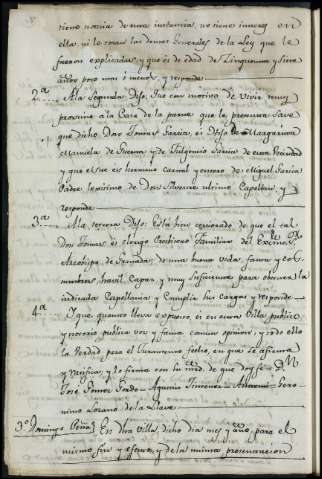 tiene noticia de esta instancia, no tiene interes en
ella, ni le tocan las demas Generales de la Ley que le
fueron explicadas, y que es de edad de Cinquenta y siete
años poco mas o menos, y responde
2.ª A la segunda Dijo: Que con motivo de vivir muy
proximo a la Casa de la parte que le presenta save
que dicho Dn Tomas Garcia, es Hijo de Margarita
Manuela de y de Fulgencio Garcia de esta Vecindad
y que el fue es hermano carnal y entero de Miguel Garcia
Padre legitimo de Don Silvestre ultimo Capellan y
responde
3.ª A la tercera Dijo: Está bien cerciorado de que el tal
Don Tomas es Clerigo Presbitero Familiar del Excmo Sr.
Arzobispo de Granada, de mui buena vida, fama y cos
tumbres havil, capaz, y muy suficiente para obtener la
indicada Capellania y Cumplir sus cargos y responde
4.ª Que quanto lleva expreso, es en esta Villa publico
y notorio publica voz y fama comun opinion, y todo ello
la Verdad para el Juramento fecho, en que se afirma
y ratifica, y lo firma con su mrd. de que doy fee. Dn
José Tomas Pardo = Antemi = Gero
nimo Lozano de la Llave
3.º Domingo Peña En dha Villa, dicho dia mes y año para el
mismo fin y efecto, y de la misma presentacion